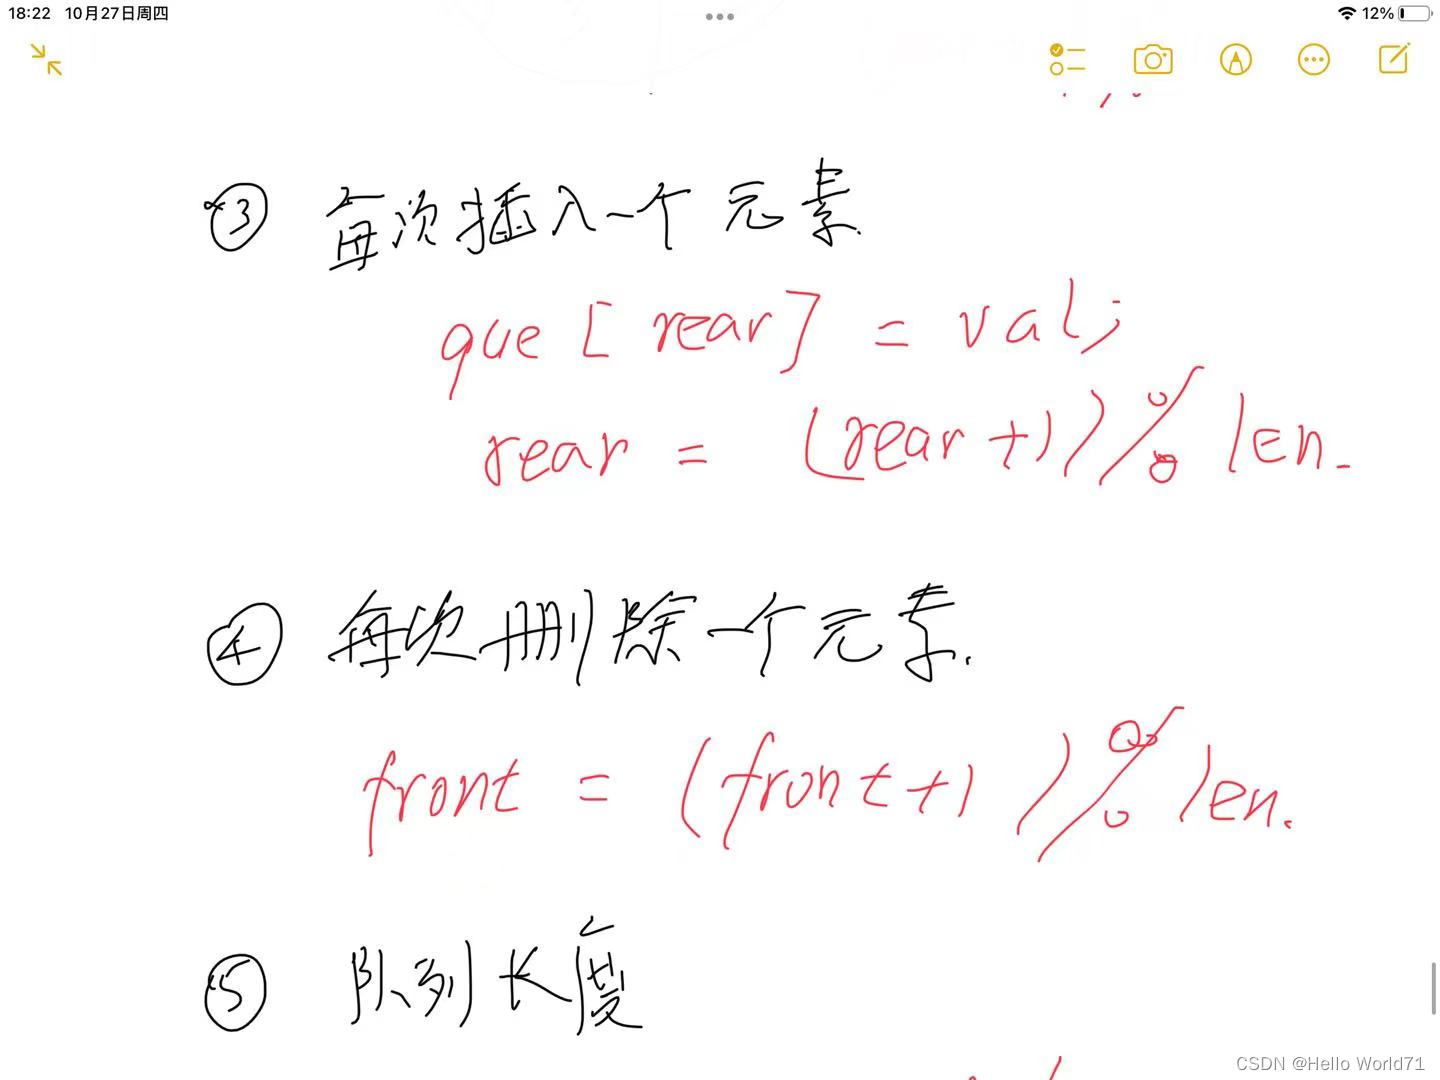 18:22 10月27日周四
12%
③ 每次插入一个元素.
que[rear] = val;
rear = (rear+1)%len.
④ 每次删除一个元素.
front = (front+1)%len.
⑤ 队列长度
CSDN @Hello World71